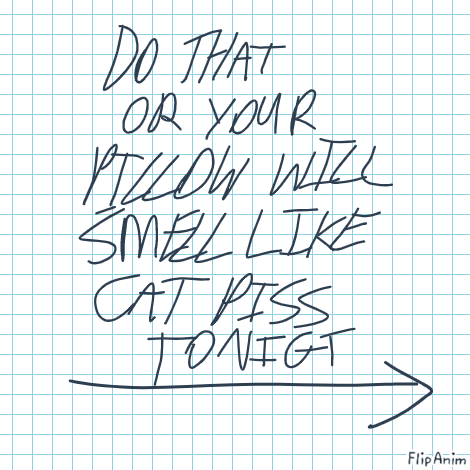 DO THAT
OR YOUR
PILLOW WILL
SMELL LIKE
CAT PISS
TONIGT
FlipAnim